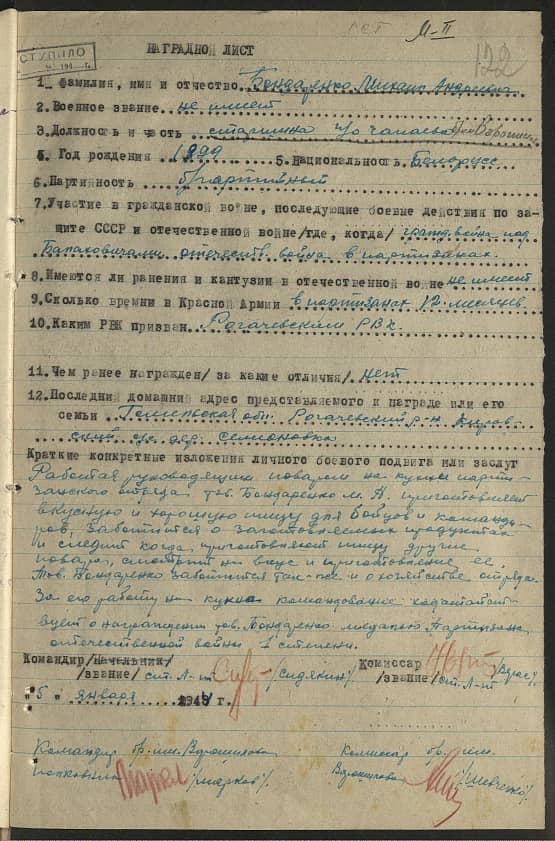 М-II
122
СТУПИЛО
НАГРАДНОЙ ЛИСТ
1. Фамилия, имя и отчество Бондаренко Михаил Андреевич
2. Военное звание не имеет
3. Должность и часть старшина п/о Чапаева бр. им Ворошилова
4. Год рождения 1899 5. Национальность Белорусс
6. Партийность б/партийный
7. Участие в гражданской войне, последующие боевые действия по за-
щите СССР и отечественной войне/где, когда/ гражд. война под
Барановичами отечеств. война в партизанах.
8. Имеются ли ранения и кантузии в отечественной войне не имеет
9. Сколько времни в Красной Армии в партизанах 12 месяцев.
10. Каким РВК призван Рогачевским РВК.
11. Чем ранее награжден/ за какие отличия/ нет
12. Последний домашний адрес представляемого к награде или его
семьи Гомельская обл. Рогачевский р-н
дер. Семёновка
Краткие конкретные изложения личного боевого подвига или заслуг
Работая руководящим поваром на кухни парти-
занского отряда тов. Бондаренко М. А. приготовляет
вкусную и хорошую пищу для бойцов и команди-
ров, заботится о заготовляемых продуктах
и следит когда, приготовляют пищу другие
повара, смотрит на вкус и приготовление ее.
Тов. Бондаренко заботится так-же и о хозяйстве отряда.
За его работу на кухне командование ходатайст-
вует о награждении тов. Бондаренко медалью Партизана
отечественной войны 2 степени.
Командир/начальник/ Комиссар
/звание/ ст. л-нт /Сидякин/ /звание/ ст. л-нт
"5" января 1944 г.
Командир бр. им. Ворошилова Комиссар бр. им.
полковник /Марков/ Ворошилова /Шевченко/